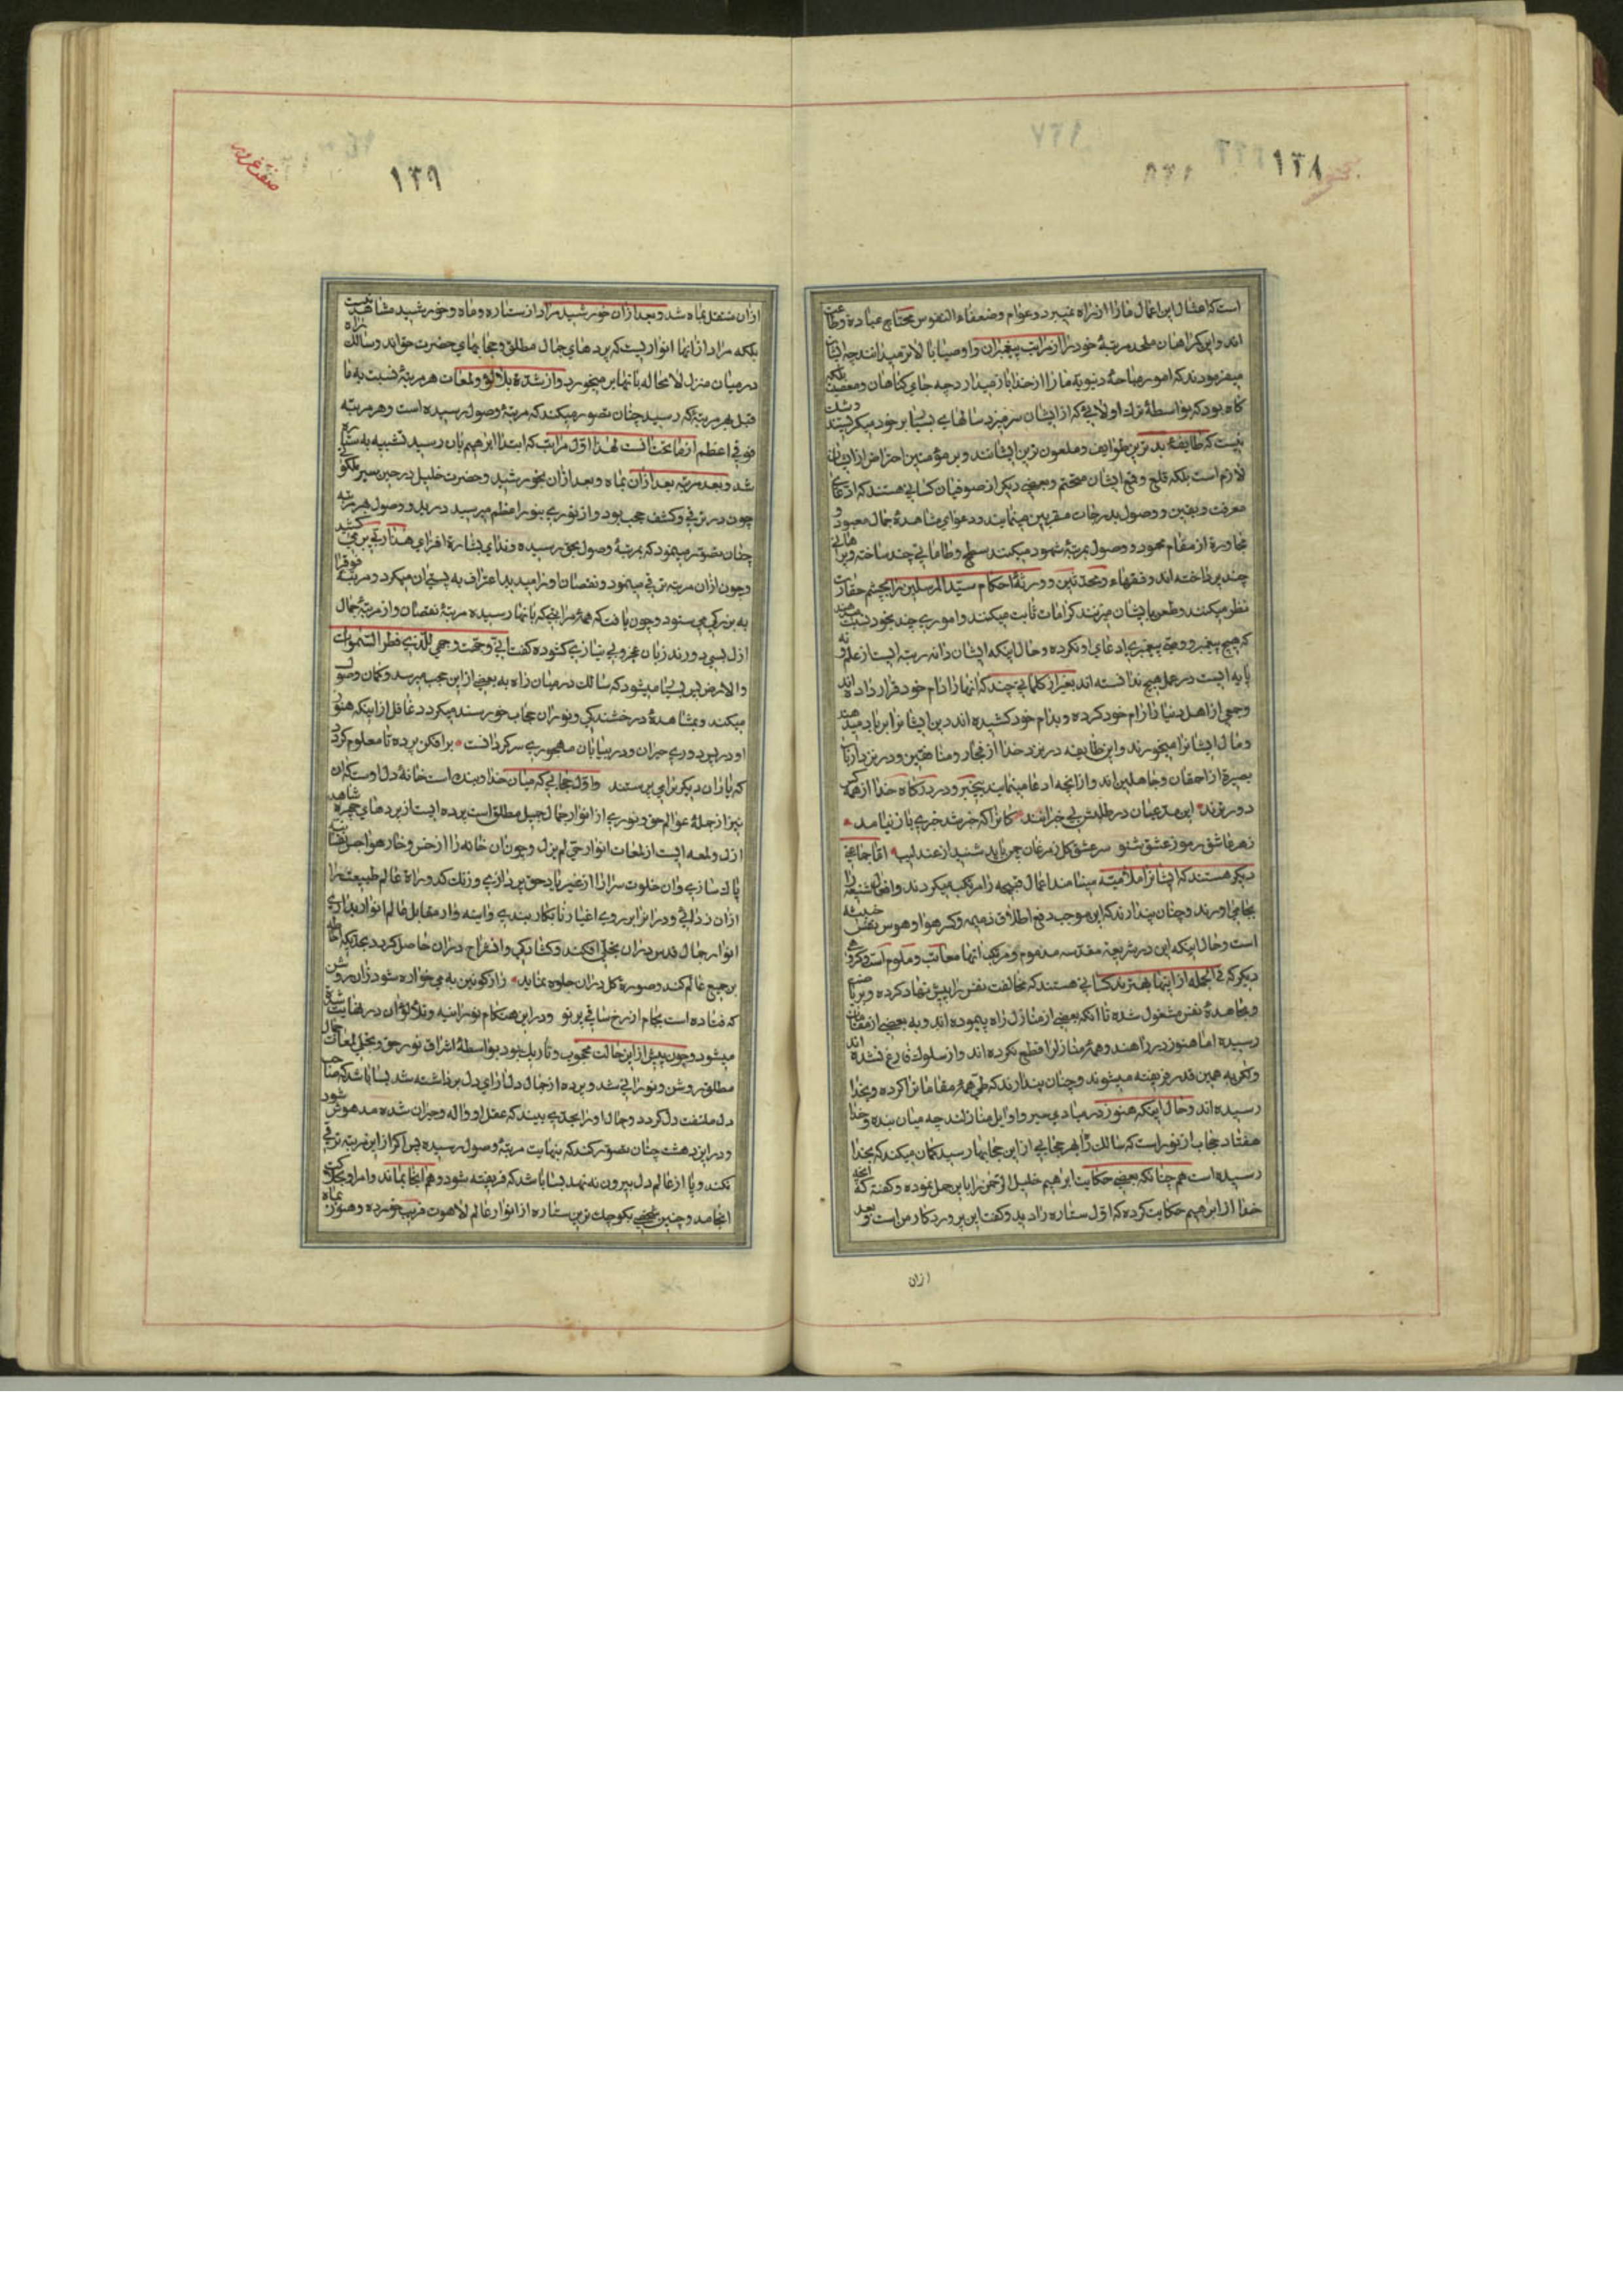 ١٣٨
است که امثال این اعمال ما را از راه نمیبرد و عوام و ضعفاء النفوس محتاج عبادة و طاعت
اند و این کمراهان ملحد مرتبهٔ خود را از مراتب پیغمبران و اوصیا بالاتر میدانند چه ایشان
میفرمودند که امور مباحهٔ دنیویه ما را از خدا باز میدارد چه جای کناهان و معصیت بلکه
کاه بود که بواسطهٔ ترك اولائی که از ایشان سر میزد سالهای بسیار بر خود میکریستند و شك
نیست که طایفهٔ بدترین طوایف و ملعون ترین ایشانند و بر مؤمنین احتراز از ایشان
لازم است بلکه قلع و قمع ایشان متحتم و بعضی دیکر از صوفیان کسانی هستند که ادعای
معرفت و یقین و وصول بدرجات مقربین مینمایند و دعوای مشاهدهٔ جمال معبود و
مجاورة از مقام محمود و وصول بمرتبهٔ شهود میکنند سطح و طاماتی چند ساخته و برهاتی
چند پرداخته اند و فقهاء و محدثین و ورثهٔ احکام سید المرسلین را بچشم حقارت
نظر میکنند و طعن بایشان میزنند کرامات ثابت میکنند و اموری چند بخود نسبت میدهند
که هیچ پیغمبر و وصی پیغمبری ادعای او نکرده و حال اینکه ایشان را نه رتبه ایست از علم و نه
پایه ایست در عمل هیچ ندانسته اند بغیر از کلماتی چند که آنها را دام خود قرار داده اند
و جمعی از اهل دنیا را رام خود کرده و بدام خود کشیده اند دین ایشانرا بر باد میدهند
و مال ایشانرا میخورند و این طایفه در نزد خدا از فجار و منافقین و در نزد ارباب
بصیرة از احمقان و جاهلین اند و از آنچه ادعا مینمایند بیخبر و در درکاه خدا از همه کس
دورترند این مدعیان در طلبش بی خبرانند کانرا که خبر شد خبری باز نیامد
زهر عاشق رموز عشق مشنو سر عشق کل ز مرغان چمن باید شنید از عندلیب اما جماعتی
دیکر هستند که ایشانرا ملامتیه مینامند اعمال قبیحه را مرتکب میکردند و افعال شنیعه را
بجامی آورند و چنان پندارند که این موجب دفع اخلاق ذمیمه و کسر هوا و هوس نفس خبیثه
است و حال اینکه این در شریعت مقدسه مذموم و مرتکب آنها معاتب و ملوم است و کروهی
دیکر که فی الجمله از اینها بهترند کسانی هستند که مخالفت نفس را پیش نهاد کرده و بریاضت
و مجاهدهٔ نفس مشغول شده تا آنکه بعضی از منازل راه پیموده اند و به بعضی از مقامات
رسیده اما هنوز در راهند و همهٔ منازل را قطع نکرده اند و از سلوك فارغ نشده اند
ولکن به همین قدر فریفته میشوند و چنان پندارند که طی همهٔ مقامات را کرده و بخدا
رسیده اند و حال اینکه هنوز در مبادی سیر و اوایل منازلند چه میان بنده و خدا
هفتاد حجاب از نور است که سالك را بهر حجابی از این حجابها رسید کمان میکند که بخدا
رسیده است هم چنانکه بعضی حکایت ابرهیم خلیل الرحمن را باین حمل نموده و کفته که آنچه
خدا از ابرهیم حکایت کرده که اول ستاره را دید و کفت این پروردکار من است و بعد
ازان
١٣٩
ازان منتقل بماه شد و بعد ازان خورشید مراد از ستاره و ماه و خورشید مشاهد نیست
بلکه مراد از آنها انواریست که پردهای جمال مطلق و حجابهای حضرت حق اند و سالك راه
در میان منزل لامحاله بانها بر میخورد و از شدة تلألؤ و لمعات هر مرتبهٔ نسبت به ما
قبل بهر مرتبهٔ که رسید چنان تصور میکند که مرتبهٔ وصول رسیده است و هر مرتبه
فوقی اعظم از ما تحت است لهذا اول مراتب که ابتدا ابرهیم بان رسید تشبیه به ستاره
شد و بعد مرتبه بعد ازان بماه و بعد ازان بخورشید و حضرت خلیل در حین سیر ملکوت
چون در ترقی و کشف حجب بود و از نوری بنور اعظم میرسید در بدو وصول هر مرتبه
چنان تصور مینمود که بمرتبهٔ وصول بحق رسیده و ندای بشارة افزای هذا ربی بر می کشید
و چون ازان مرتبه ترقی مینمود و نقصان او را میدید اعتراف به پستی ان میکرد و مرتبهٔ فوق را
به بزرکی می ستود و چون یافت که همهٔ مراتبی که بانها رسیده مرتبهٔ نقصان و از مرتبهٔ جمال
ازل بسی دورند زبان عجز و بی نیازی کشوده کفت انی وجهت وجهی للذی فطر السموات
والارض پس بسیار میشود که سالك در میان راه به بعضی از این حجب میرسد و کمان وصول
میکند و بمشاهدهٔ درخشندکی و نور ان حجاب خورسند میکردد غافل از اینکه هنوز
او در پس دوری حیران و در بیابان مهجوری سرکردانست برافکن پرده تا معلوم کردد
که یاران دیکری را می پرستند و اول حجابی که میان خدا و بنده است خانهٔ دل اوست که ان
نیز از جملهٔ عوالم حق و نوری از انوار جمال جمیل مطلق است پرده ایست از پردهای چهره شاهد
ازل و لمعه ایست از لمعات انوار حی لم یزل و چون ان خانه را از خس و خار هواجس نفسانیه
پاك سازی و ان خلوت سرا را از غیر یاد حق پردازی و زنك کدوراة عالم طبیعت را
ازان زدائی و در انرا بروی اغیار نابکار بندی و آینه وار مقابل عالم انوار بداری
انوار جمال قدس دران تجلی افکند و کشایش و انفراج دران حاصل کردد بحدیکه احاطه
بر جمیع عالم کند و صورة کل دران جلوه نماید راز کونین به می خواره شود زان روشن
که فتاده است بجام از رخ ساقی پرتو و در این هنکام نورانیه و تلألؤ ان در نهایت شدة
میشود و چون پیش از این حالت محجوب و تاریك بود بواسطهٔ اشراق نور حق و تجلی لمعات جمال
مطلق روشن و نورانی شد و پرده از جمال دل ارای دل برداشته شد بسا باشد که صاحب
دل ملتفت دل کردد و جمال او را بحدی بیند که عقل او واله و حیران شده مدهوش شود
و در این دهشت چنان تصور کند که بنهایت مرتبهٔ وصول رسیده پس اکر از این مرتبه ترقی
نکند و پا از عالم دل بیرون نه نهد بسا باشد که فریفته شود و هم انجا بماند و امر او بهلاکت
انجامد و چنین شخصی بکوچك ترین ستاره از انوار عالم لاهوت فریب خورده و هنوز بماه